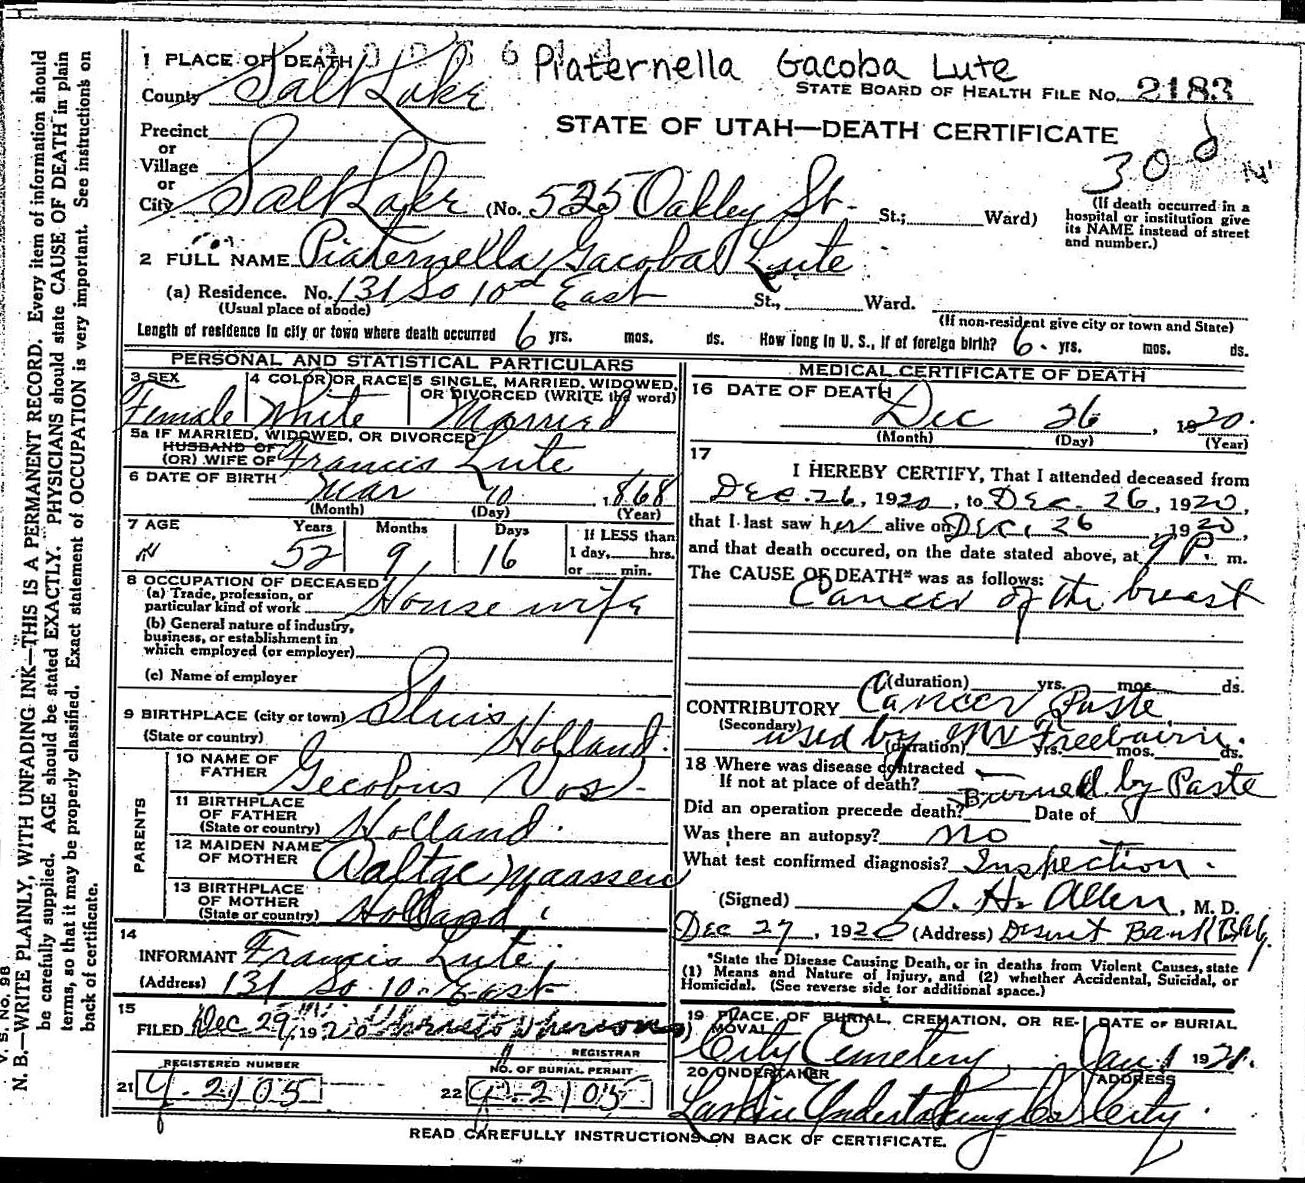 V. S. No. 98
N. B.—WRITE PLAINLY, WITH UNFADING INK—THIS IS A PERMANENT RECORD. Every item of information should
be carefully supplied. AGE should be stated EXACTLY. PHYSICIANS should state CAUSE OF DEATH in plain
terms, so that it may be properly classified. Exact statement of OCCUPATION is very important. See instructions on
back of certificate.
Piaternella Gacoba Lute
1 PLACE OF DEATH
County Salt Lake
STATE BOARD OF HEALTH FILE NO. 2183
STATE OF UTAH—DEATH CERTIFICATE
30
Precinct
or
Village
or
City Salt Lake (No. 525 Oakley St. St.; Ward)
(If death occurred in a
hospital or institution give
its NAME instead of street
and number.)
2 FULL NAME Piaternella Gacoba Lute
(a) Residence. No. 131 So 10th East St., Ward.
(Usual place of abode) (If non-resident give city or town and State)
Length of residence in city or town where death occurred 6 yrs. mos. ds. How long in U. S., if of foreign birth? 6 yrs. mos. ds.
PERSONAL AND STATISTICAL PARTICULARS
3 SEX
Female
4 COLOR OR RACE
White
5 SINGLE, MARRIED, WIDOWED,
OR DIVORCED (WRITE the word)
Married
5a IF MARRIED, WIDOWED, OR DIVORCED
HUSBAND OF
(OR) WIFE OF Francis Lute
6 DATE OF BIRTH Mar 10, 1868
(Month) (Day) (Year)
7 AGE
Years Months Days
52 9 16
If LESS than
1 day, hrs.
or min.
8 OCCUPATION OF DECEASED
(a) Trade, profession, or
particular kind of work House wife
(b) General nature of industry,
business, or establishment in
which employed (or employer)
(c) Name of employer
9 BIRTHPLACE (city or town) Sluis
(State or country) Holland.
PARENTS
10 NAME OF
FATHER Gecobus Vos
11 BIRTHPLACE
OF FATHER
(State or country) Holland.
12 MAIDEN NAME
OF MOTHER Aaltae Manssen
13 BIRTHPLACE
OF MOTHER
(State or country) Holland
14
INFORMANT Francis Lute
(Address) 131 So 10. East
15
FILED Dec 29, 1920
REGISTRAR
REGISTERED NUMBER
21 9-2105
NO. OF BURIAL PERMIT
22 9-2105
MEDICAL CERTIFICATE OF DEATH
16 DATE OF DEATH
Dec 26, 1920.
(Month) (Day) (Year)
17
I HEREBY CERTIFY, That I attended deceased from
Dec. 26, 1920, to Dec. 26, 1920,
that I last saw her alive on Dec. 26, 1920,
and that death occured, on the date stated above, at 9 P. m.
The CAUSE OF DEATH* was as follows:
Cancer of the breast
(duration) yrs. mos. ds.
CONTRIBUTORY Cancer Paste
(Secondary) used by Mr Freebairn.
(duration) yrs. mos. ds.
18 Where was disease contracted
If not at place of death? Burned by Paste
Did an operation precede death? Date of
Was there an autopsy? no
What test confirmed diagnosis? Inspection.
(Signed) S. H. Allen, M. D.
Dec 27, 1920 (Address) Desert Bank Bldg.
*State the Disease Causing Death, or in deaths from Violent Causes, state
(1) Means and Nature of Injury, and (2) whether Accidental, Suicidal, or
Homicidal. (See reverse side for additional space.)
19 PLACE OF BURIAL, CREMATION, OR RE-
MOVAL
City Cemetery
DATE OF BURIAL
Jan 1 1921.
20 UNDERTAKER
Larkin Undertaking Co
ADDRESS
City.
READ CAREFULLY INSTRUCTIONS ON BACK OF CERTIFICATE.